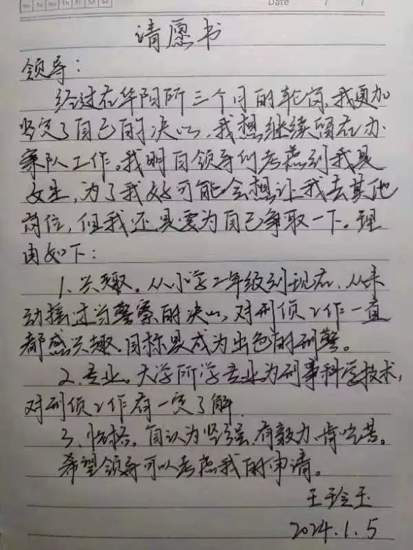 Date
请愿书
领导：
经过在华阴所三个月的轮岗，我更加
坚定了自己的决心，我想继续留在办
案队工作。我明白领导们考虑到我是
女生，为了我好可能会想让我去其他
岗位，但我还是要为自己争取一下。理
由如下：
1.兴趣。从小学二年级到现在，从未
动摇过当警察的决心，对刑侦工作一直
都感兴趣，目标是成为出色的刑警。
2.专业。大学所学专业为刑事科学技术，
对刑侦工作有一定了解。
3.性格。自认为坚强，有毅力，肯吃苦。
希望领导可以考虑我的申请。
王玲玉
2024.1.5